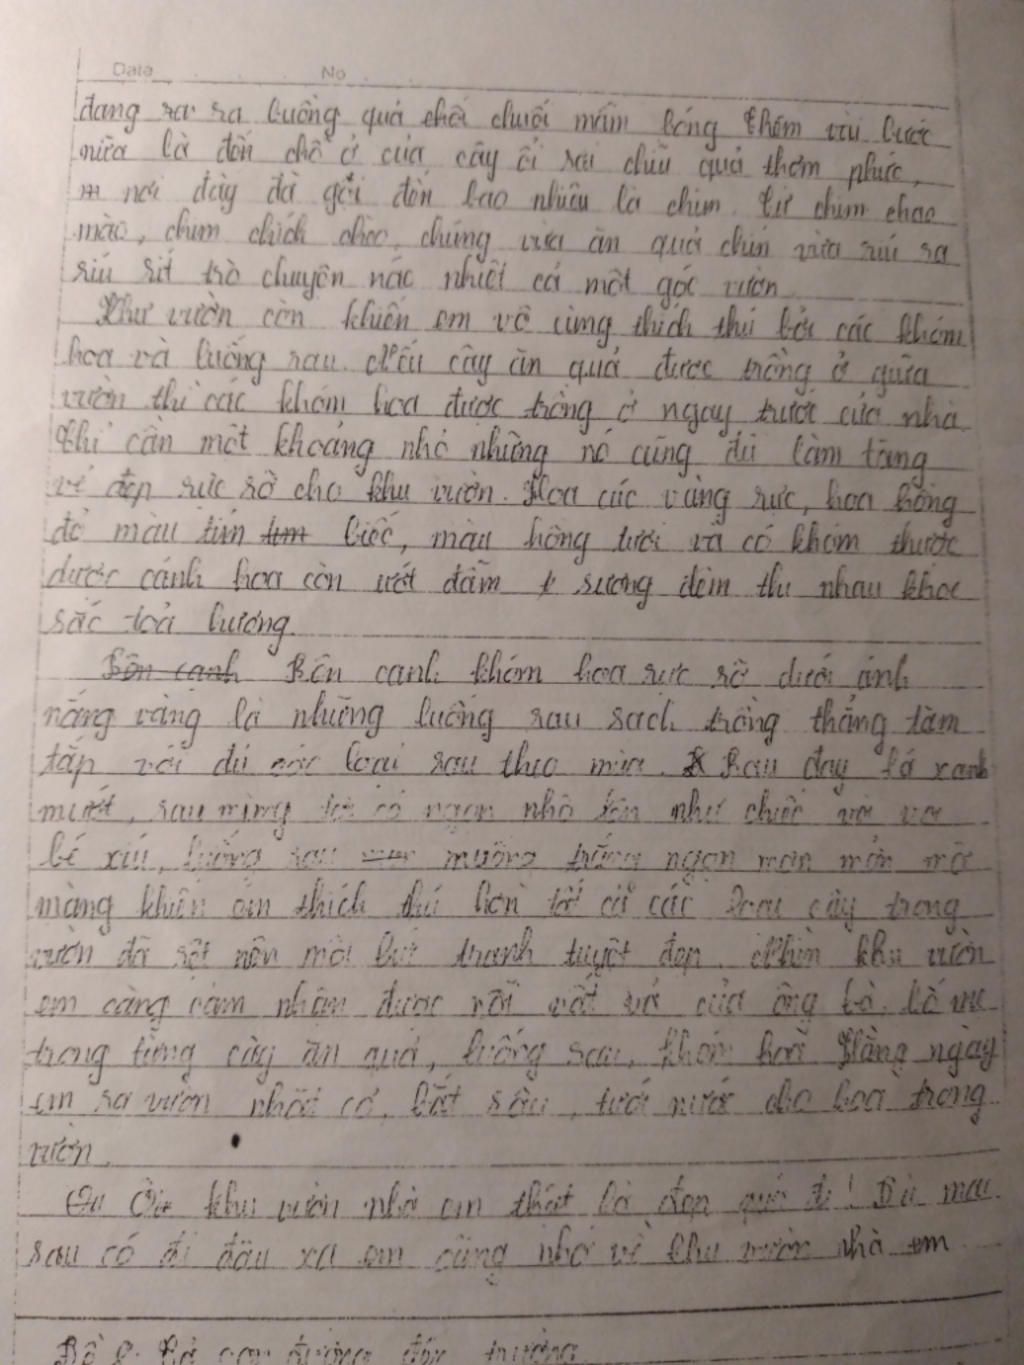 Date No
đang ra ra buồng quả chối chuối mẩm bóng thêm vài bước
nữa là đến chỗ ở của cây ổi sai chĩu quả thơm phức,
nơi đây đã gọi đến bao nhiêu là chim. từ chim chào
mào, chim chích chòe, chúng vừa ăn quả chín vừa ríu ra
ríu rít trò chuyện náo nhiệt cả một góc vườn
Khu vườn còn khiến em vô cùng thích thú bởi các khóm
hoa và luống rau. Nếu cây ăn quả được trồng ở giữa
vườn thì các khóm hoa được trồng ở ngay trước cửa nhà.
Chỉ cần một khoảng nhỏ nhưng nó cũng đủ làm tăng
vẻ đẹp rực rỡ cho khu vườn. Hoa cúc vàng rực, hoa hồng
đỏ màu tím tim biếc, màu hồng tươi và có khóm thược
dược cánh hoa còn ướt đẫm sương đêm thi nhau khoe
sắc toả hương.
Bên cạnh Bên cạnh khóm hoa rực rỡ dưới ánh
nắng vàng là những luống rau sạch trồng thẳng tăm
tắp với đủ các loại rau theo mùa. Rau đay lá xanh
mướt, rau mùng tơi có ngọn nhô lên như chiếc vòi voi
bé xíu, luống rau muống trắng ngọn mơn mởn mỡ
màng khiến em thích thú hơn tất cả các loại cây trong
vườn đã dệt nên một bức tranh tuyệt đẹp. Nhìn khu vườn
em càng cảm nhận được nỗi vất vả của ông bà, bố mẹ
trong từng cây ăn quả, luống rau, khóm hoa Hằng ngày
em ra vườn nhặt cỏ, bắt sâu, tưới nước cho hoa trong
vườn.
Ôi khu vườn nhà em thật là đẹp quá đi! Dù mai
sau có đi đâu xa em cũng nhớ về khu vườn nhà em
Đề 2: Tả con đường đến trường